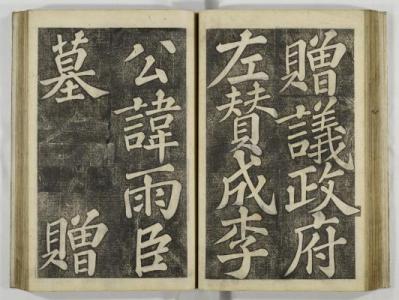 贈議政府
左賛成李
公諱雨臣
墓　贈